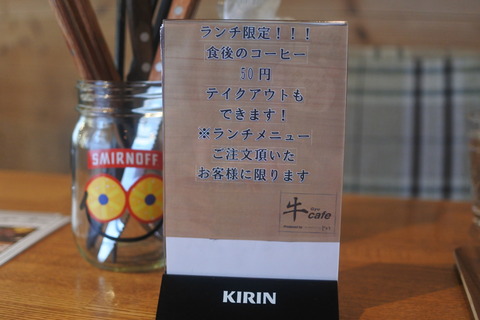 ランチ限定！！！
食後のコーヒー
50円
テイクアウトも
できます！
※ランチメニュー
ご注文頂いた
お客様に限ります
牛
cafe
KIRIN
SMIRNOFF